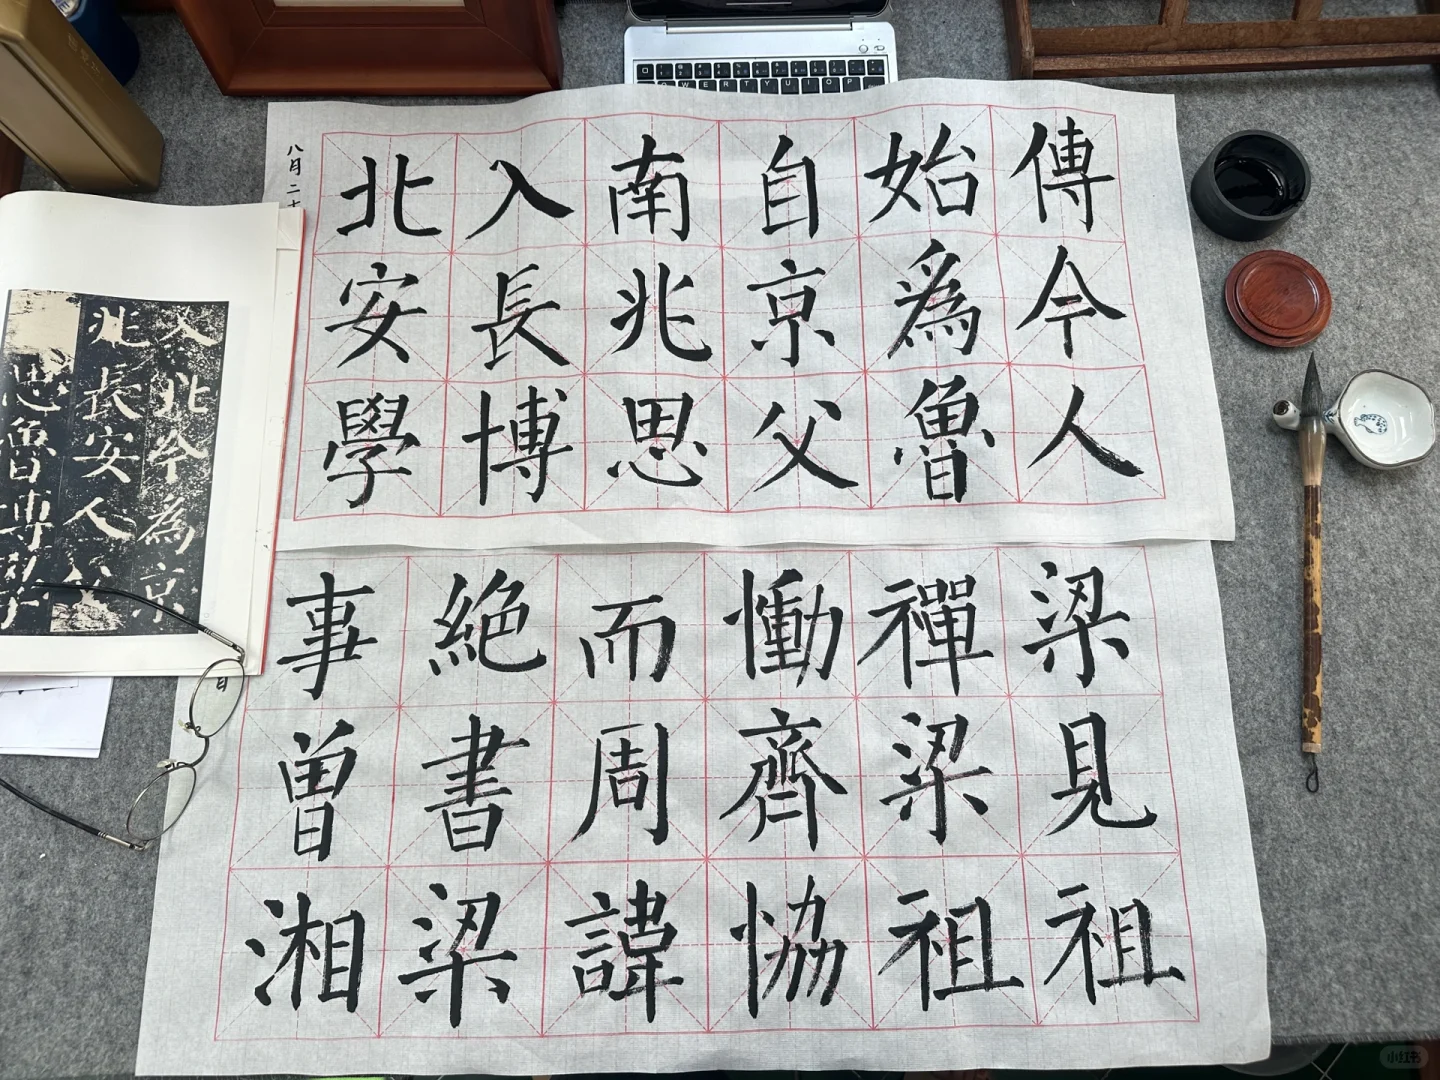 八月二十
傳始自南入北
今為京兆長安
人魯父思博學
梁禪慟而絶事
見梁齊周書曾
祖祖恊諱梁湘
入北今為京
兆長安人父
思魯博學
小红书